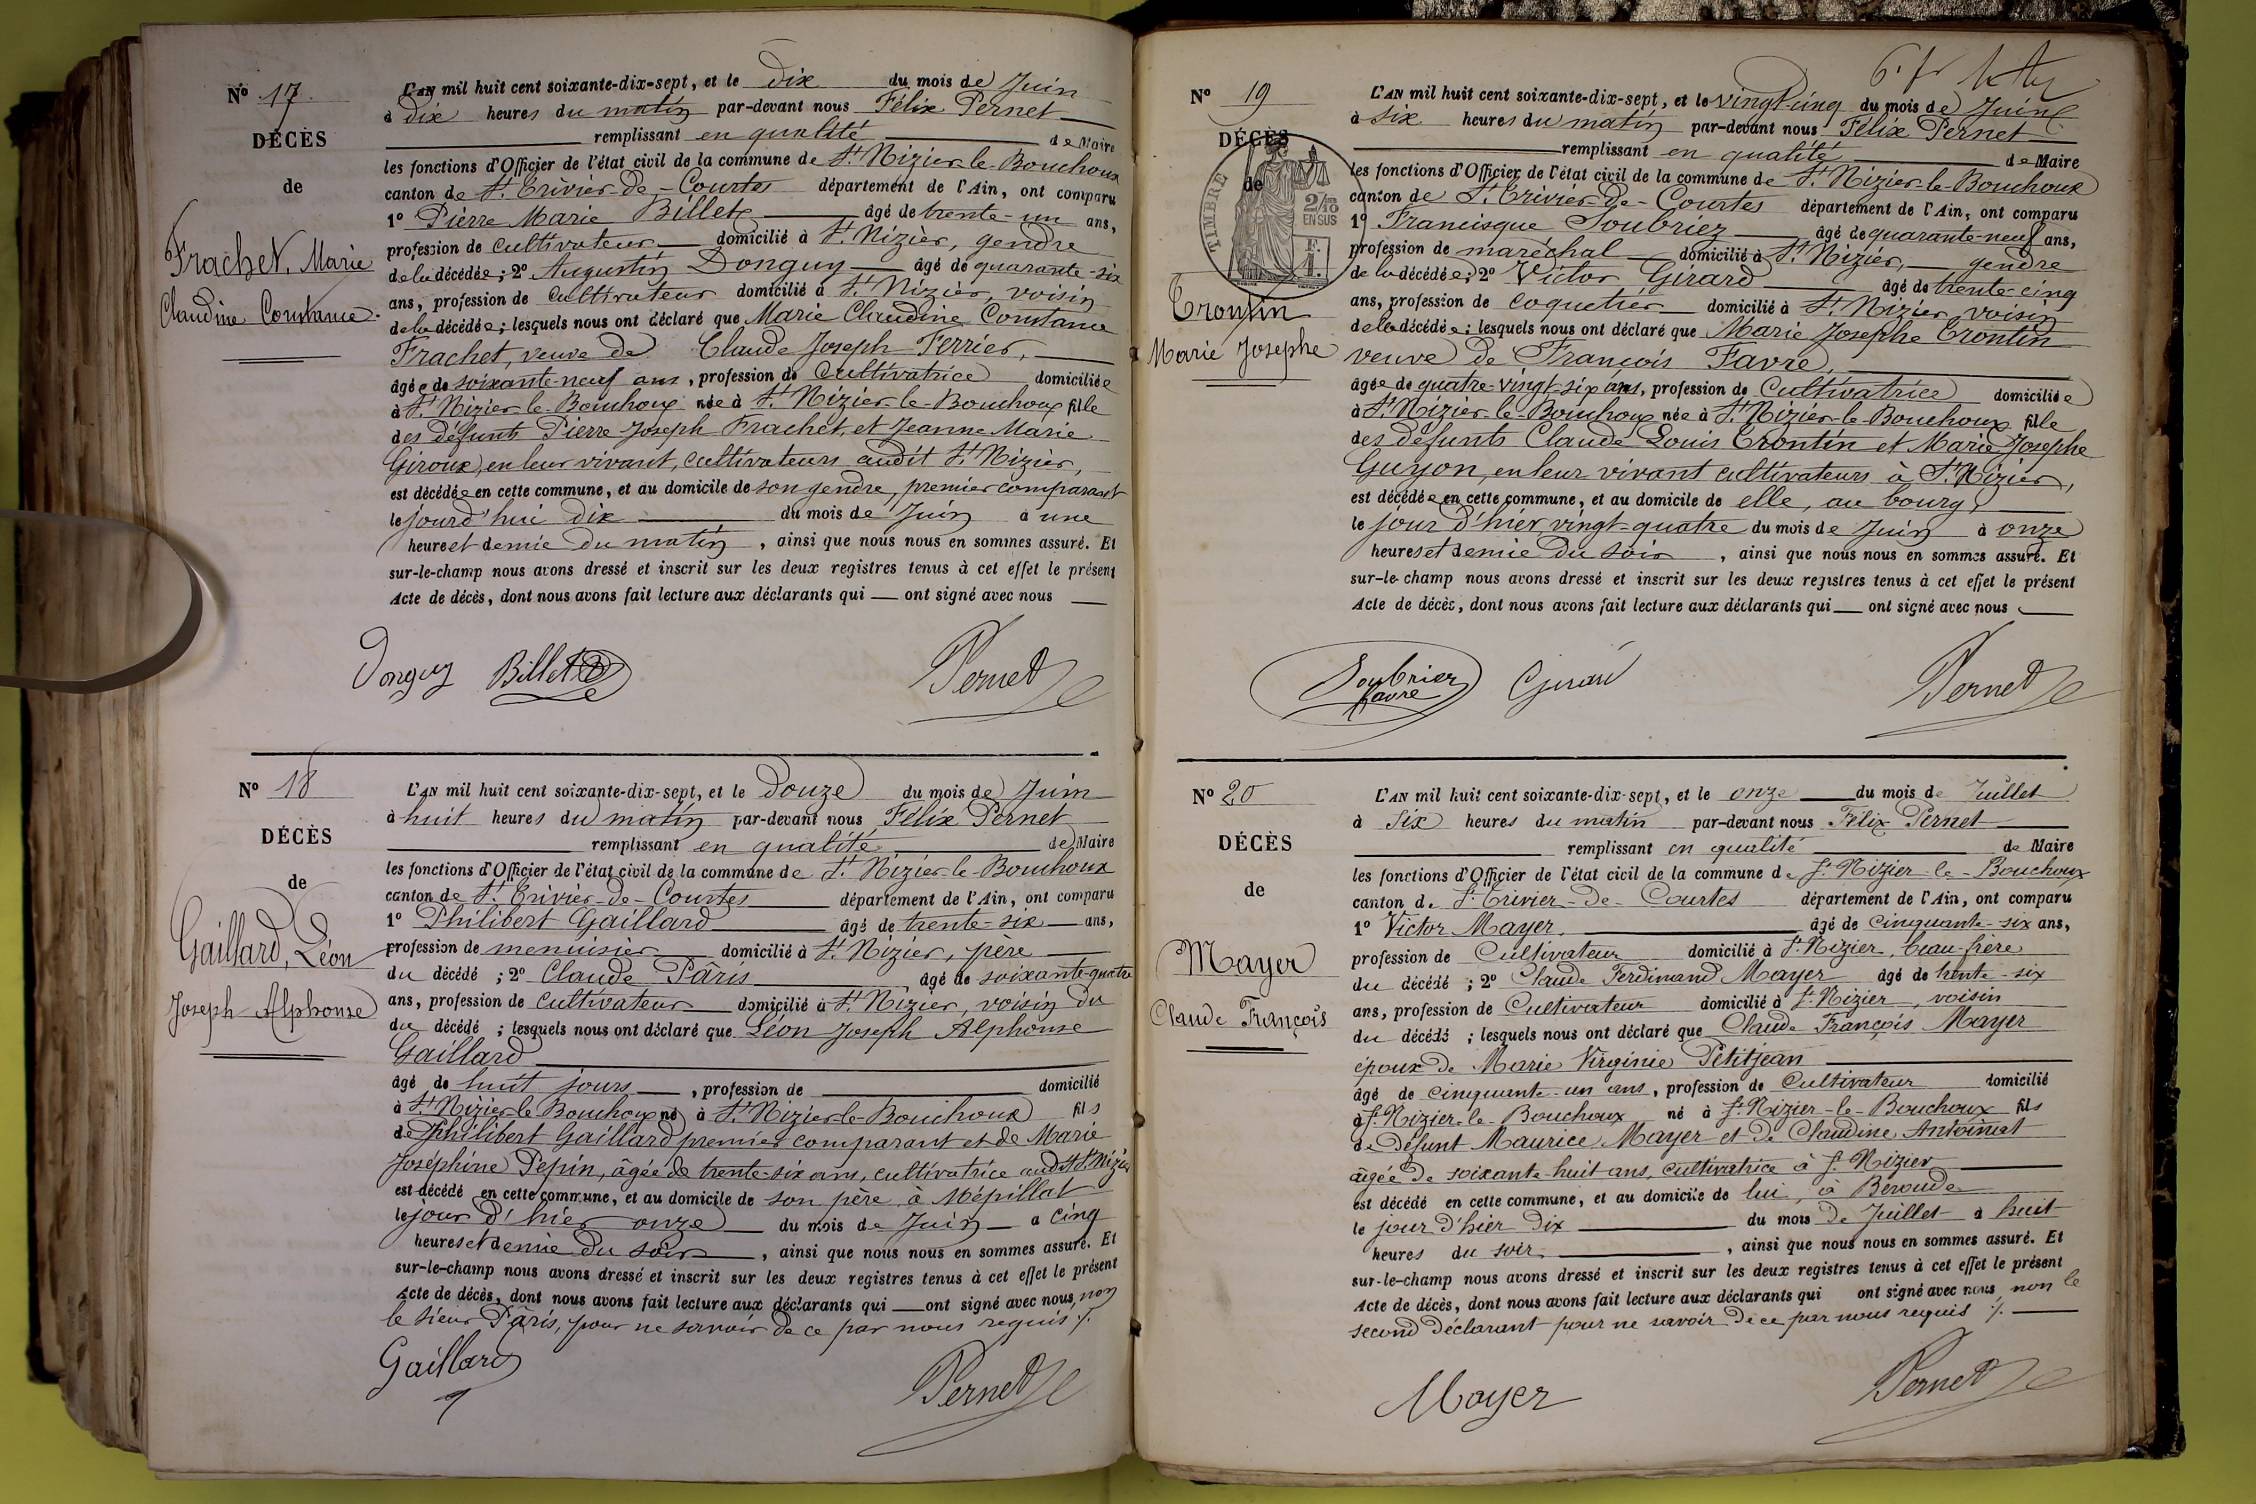 N° 17
DÉCÈS
de
Frachet, Marie
Claudine Constance.
L'AN mil huit cent soixante-dix-sept, et le dix du mois de Juin
à dix heures du matin par-devant nous Félix Pernet
remplissant en qualité de Maire
les fonctions d'Officier de l'état civil de la commune de St Nizier-le-Bouchoux
canton de St Trivier-de-Courtes département de l'Ain, ont comparu
1° Pierre Marie Billet âgé de trente-un ans,
profession de cultivateur domicilié à St Nizier, gendre
de la décédée; 2° Augustin Donguy âgé de quarante-six
ans, profession de cultivateur domicilié à St Nizier, voisin
de la décédée; lesquels nous ont déclaré que Marie Claudine Constance
Frachet, veuve de Claude Joseph Ferrier,
âgée de soixante-neuf ans, profession de Cultivatrice domiciliée
à St Nizier-le-Bouchoux née à St Nizier-le-Bouchoux fille
des défunts Pierre Joseph Frachet, et Jeanne Marie
Giroux, en leur vivant, cultivateurs audit St Nizier,
est décédée en cette commune, et au domicile de son gendre, premier comparant
le jourd'hui dix du mois de Juin à une
heure et demie du matin, ainsi que nous nous en sommes assuré. Et
sur-le-champ nous avons dressé et inscrit sur les deux registres tenus à cet effet le présent
Acte de décès, dont nous avons fait lecture aux déclarants qui ont signé avec nous
Donguy Billet Pernet
N° 18
DÉCÈS
de
Gaillard, Léon
Joseph Alphonse
L'AN mil huit cent soixante-dix-sept, et le Douze du mois de Juin
à huit heures du matin par-devant nous Félix Pernet
remplissant en qualité de Maire
les fonctions d'Officier de l'état civil de la commune de St Nizier-le-Bouchoux
canton de St Trivier-de-Courtes département de l'Ain, ont comparu
1° Philibert Gaillard âgé de trente-six ans,
profession de menuisier domicilié à St Nizier, père
du décédé; 2° Claude Pâris âgé de soixante-quatre
ans, profession de cultivateur domicilié à St Nizier, voisin du
du décédé; lesquels nous ont déclaré que Léon Joseph Alphonse
Gaillard
âgé de huit jours, profession de domicilié
à St Nizier-le-Bouchoux né à St Nizier-le-Bouchoux fils
de Philibert Gaillard premier comparant et de Marie
Joséphine Pepin, âgée de trente-six ans, cultivatrice audit St Nizier
est décédé en cette commune, et au domicile de son père à Mépillat
le jour d'hier onze du mois de Juin à cinq
heures et demie du soir, ainsi que nous nous en sommes assuré. Et
sur-le-champ nous avons dressé et inscrit sur les deux registres tenus à cet effet le présent
Acte de décès, dont nous avons fait lecture aux déclarants qui ont signé avec nous, non
le sieur Pâris, pour ne savoir de ce par nous requis ./.
Gaillard Pernet
N° 19
DÉCÈS
de
TIMBRE
2/10
EN SUS
Trontin
Marie Josephe
L'AN mil huit cent soixante-dix-sept, et le vingt-cinq du mois de Juin
à six heures du matin par-devant nous Félix Pernet
remplissant en qualité de Maire
les fonctions d'Officier de l'état civil de la commune de St Nizier-le-Bouchoux
canton de St Trivier-de-Courtes département de l'Ain, ont comparu
1° Francisque Soubriez âgé de quarante-neuf ans,
profession de maréchal domicilié à St Nizier, gendre
de la décédée; 2° Victor Girard âgé de trente-cinq
ans, profession de coquetier domicilié à St Nizier, voisin
de la décédée; lesquels nous ont déclaré que Marie Josephe Trontin
veuve de François Favre,
âgée de quatre-vingt-six ans, profession de Cultivatrice domiciliée
à St Nizier-le-Bouchoux née à St Nizier-le-Bouchoux fille
des défunts Claude Louis Trontin et Marie Josephe
Guyon, en leur vivant cultivateurs à St Nizier,
est décédée en cette commune, et au domicile de elle, au bourg,
le jour d'hier vingt-quatre du mois de Juin à onze
heures et demie du soir, ainsi que nous nous en sommes assuré. Et
sur-le-champ nous avons dressé et inscrit sur les deux registres tenus à cet effet le présent
Acte de décès, dont nous avons fait lecture aux déclarants qui ont signé avec nous
Soubrier Favre Girard Pernet
N° 20
DÉCÈS
de
Mayer
Claude François
L'AN mil huit cent soixante-dix-sept, et le onze du mois de Juillet
à Six heures du matin par-devant nous Félix Pernet
remplissant en qualité de Maire
les fonctions d'Officier de l'état civil de la commune de St Nizier-le-Bouchoux
canton de St Trivier-de-Courtes département de l'Ain, ont comparu
1° Victor Mayer âgé de cinquante-six ans,
profession de Cultivateur domicilié à St Nizier, beau-frère
du décédé; 2° Claude Ferdinand Mayer âgé de trente-six
ans, profession de Cultivateur domicilié à St Nizier, voisin
du décédé; lesquels nous ont déclaré que Claude François Mayer
époux de Marie Virginie Petitjean
âgé de cinquante-un ans, profession de Cultivateur domicilié
à St Nizier-le-Bouchoux né à St Nizier-le-Bouchoux fils
de Défunt Maurice Mayer et de Claudine Antoinat
âgée de soixante-huit ans, cultivatrice à St Nizier
est décédé en cette commune, et au domicile de lui, à Béroude
le jour d'hier dix du mois de Juillet à huit
heures du soir, ainsi que nous nous en sommes assuré. Et
sur-le-champ nous avons dressé et inscrit sur les deux registres tenus à cet effet le présent
Acte de décès, dont nous avons fait lecture aux déclarants qui ont signé avec nous, non le
second déclarant pour ne savoir de ce par nous requis ./.
Mayer Pernet